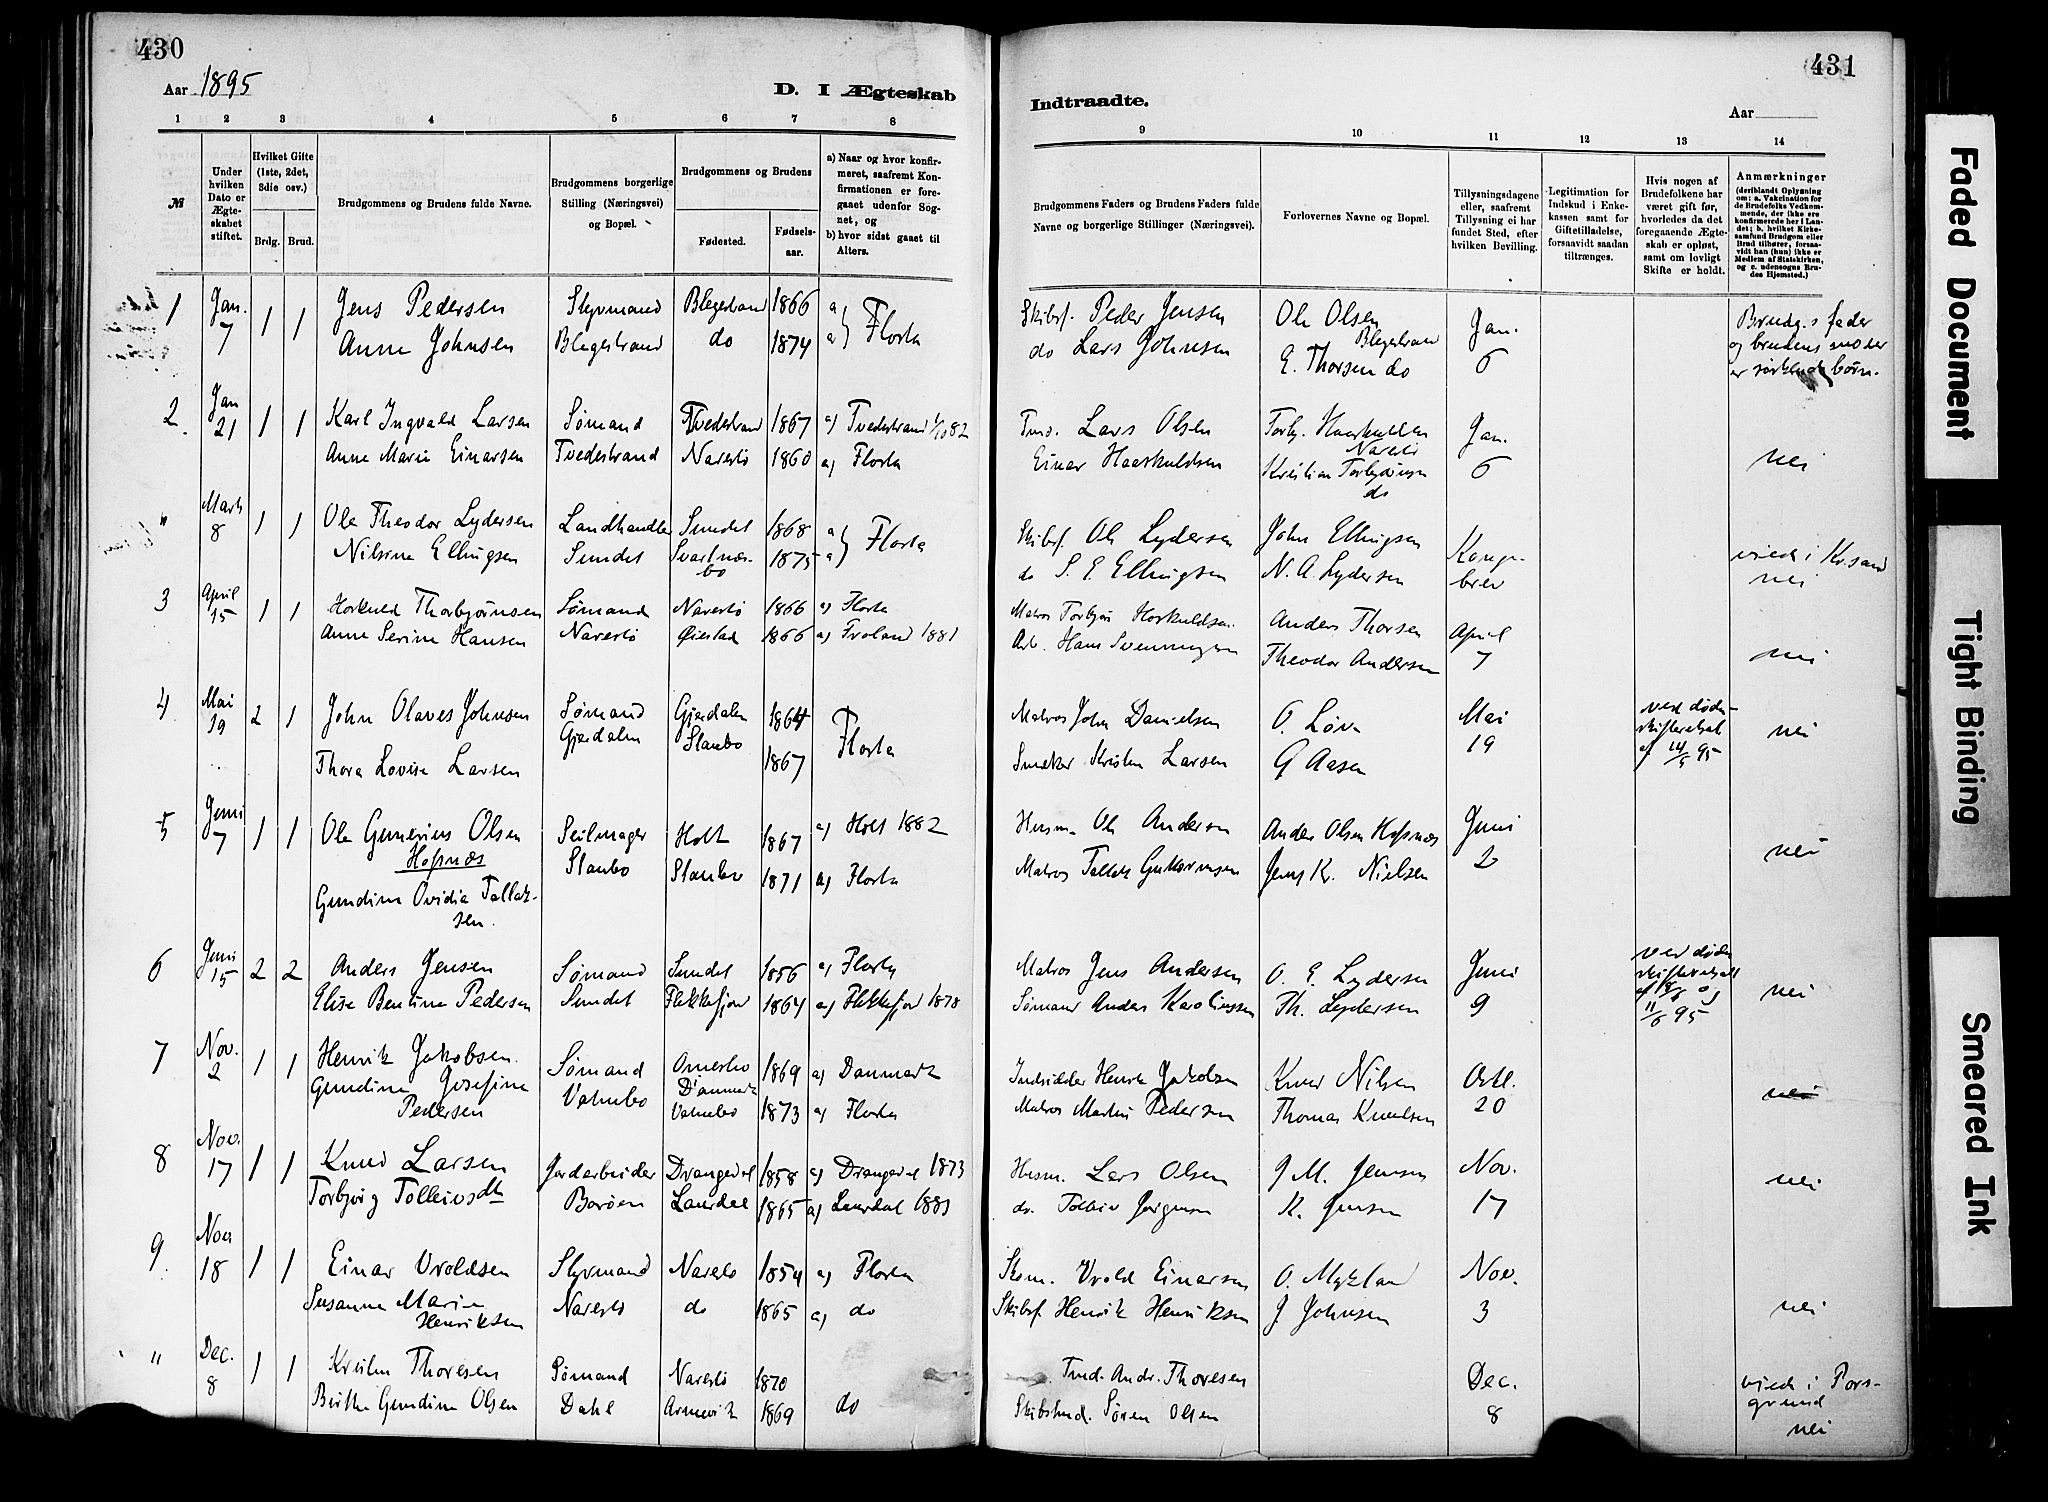 430
Aar 1895
D. I Ægteskab
1 2 3 4 5 6 7 8
№
Under hvilken Dato er Ægteskabet stiftet.
Hvilket Gifte (1ste, 2det, 3die osv.)
Brdg. Brud.
Brudgommens og Brudens fulde Navne.
Brudgommens borgerlige Stilling (Næringsvei) og Bopæl.
Brudgommens og Brudens
Fødested.
Fødselsaar.
a) Naar og hvor konfirmeret, saafremt Konfirmationen er foregaaet udenfor Sognet, og
b) hvor sidst gaaet til Alters.
1 Jan. 7 1 1 Jens Pedersen Styrmand Blegestrand 1866 a) Flosta
Anne Johnsen Blegestrand do 1874 a)
2 Jan 21 1 1 Karl Ingvald Larsen Sømand Tvedestrand 1867 a) Tvedestrand 1/10 82
Anne Marie Einarsen Tvedestrand Narestø 1860 a) Flosta
" Marts 8 1 1 Ole Theodor Lydersen Landhandler Sundet 1868 a) Flosta
Nilsine Ellingsen Sundet Svartnæsbo 1875 a)
3 April 15 1 1 Horkuld Thorbjørnsen Sømand Narestø 1866 a) Flosta
Anne Serine Hansen Narestø Øiestad 1866 a) Froland 1881
4 Mai 19 2 1 John Olaves Johnsen Sømand Gjerdalen 1864 Flosta
Gjerdalen Staubo
Thora Lovise Larsen 1867
5 Juni 7 1 1 Ole Gunerius Olsen Seilmager Holt 1867 a) Holt 1882
Hopnæs Staubo Staubo 1871 a) Flosta
Gundine Ovidia Tallaksen.
6 Juni 15 2 2 Anders Jensen Sømand Sundet 1856 a) Flosta
Elise Bentine Pedersen Sundet Flekkefjord 1864 a) Flekkefjord 1878
7 Nov. 2 1 1 Henrik Jakobsen Sømand Danmark 1869 a) Danmark
Gundine Josefine Pedersen Vatnebo Vatnebo 1873 a) Flosta
8 Nov. 17 1 1 Knud Larsen Jordarbeider Drangedal 1858 a) Drangedal 1873
Torbjørg Tolleivsdtr Borøen Laurdal 1865 a) Laurdal 1881
9 Nov 18 1 1 Einar Uroldsen Styrmand Narestø 1854 a) Flosta
Susanne Marie Henriksen Narestø do 1865 a) do
" Dec. 8 1 1 Kristen Thoresen Sømand Narestø 1870
Birthe Gundine Olsen Dahl Arnevik 1869 do
431
Indtraadte.
Aar
9 10 11 12 13 14
Brudgommens Faders og Brudens Faders fulde Navne og borgerlige Stillinger (Næringsvei).
Forlovernes Navne og Bopæl.
Tillysningsdagene eller, saafremt Tillysning ei har fundet Sted, efter hvilken Bevilling.
Legitimation for Indskud i Enkekassen samt for Giftetilladelse, forsaavidt saadan tiltrænges.
Hvis nogen af Brudefolkene har været gift før, hvorledes da det foregaaende Ægteskab er opløst, samt om lovligt Skifte er holdt.
Anmærkninger
(deriblandt Oplysning om: a. Vakcination for de Brudefolks Vedkommende, der ikke ere konfirmerede her i Landet; b. hvilket Kirkesamfund Brudgom eller Brud tilhører, forsaavidt han (hun) ikke er Medlem af Statskirken, og c. udensogns Brudes Hjemsted.)
Skibsf. Peder Jensen Ole Olsen Blegestrand Jan. 6 Brudg.s fader og brudens moder er søskendebørn.
do Lars Johnsen E. Thorsen do
Tmd. Lars Olsen Torbj. Haarkuldsen Narestø Jan. 6 nei
Einar Haarkuldsen Kristian Torbjørnsen do
Skibsf. Ole Lydersen John Ellingsen Kongebrev viede i Kr.sand nei
do S. E. Ellingsen N. A. Lydersen
Matros Torbjørn Horkuldsen Anders Thorsen April 7 nei
Arb. Hans Svenningsen Theodor Andersen
Matros John Danielsen O. Løvn Mai 19 ved døden skifteattest af 14/5 95 nei
Snekker Kristen Larsen G Aasen
Husm. Ole Andersen Anders Olsen Hopnæs Juni 2 nei
Matros Tallak Guttormsen Jens Kr. Nielsen
Matros Jens Andersen O. E. Lydersen Juni 9 ved døden skifteattest af 18/6 og 11/6 95 nei
Sømand Anders Karoliussen Th. Lydersen
Indsidder Henrik Jakobsen Knud Nilsen Okt. 20 nei
Matros Martin Pedersen Thomas Knudsen
Husm. Lars Olsen J M. Jensen Nov. 17 nei
do. Tolleiv Jørgensen K. Jensen
Skom. Urold Einarsen O. Mykland Nov. 3 nei
Skibsf. Henrik Henriksen J Johnsen
Tmd. Andr. Thoresen Dec. 8 viede i Porsgrund nei
Skibstmd. Søren Olsen
Faded Document
Tight Binding
Smeared Ink